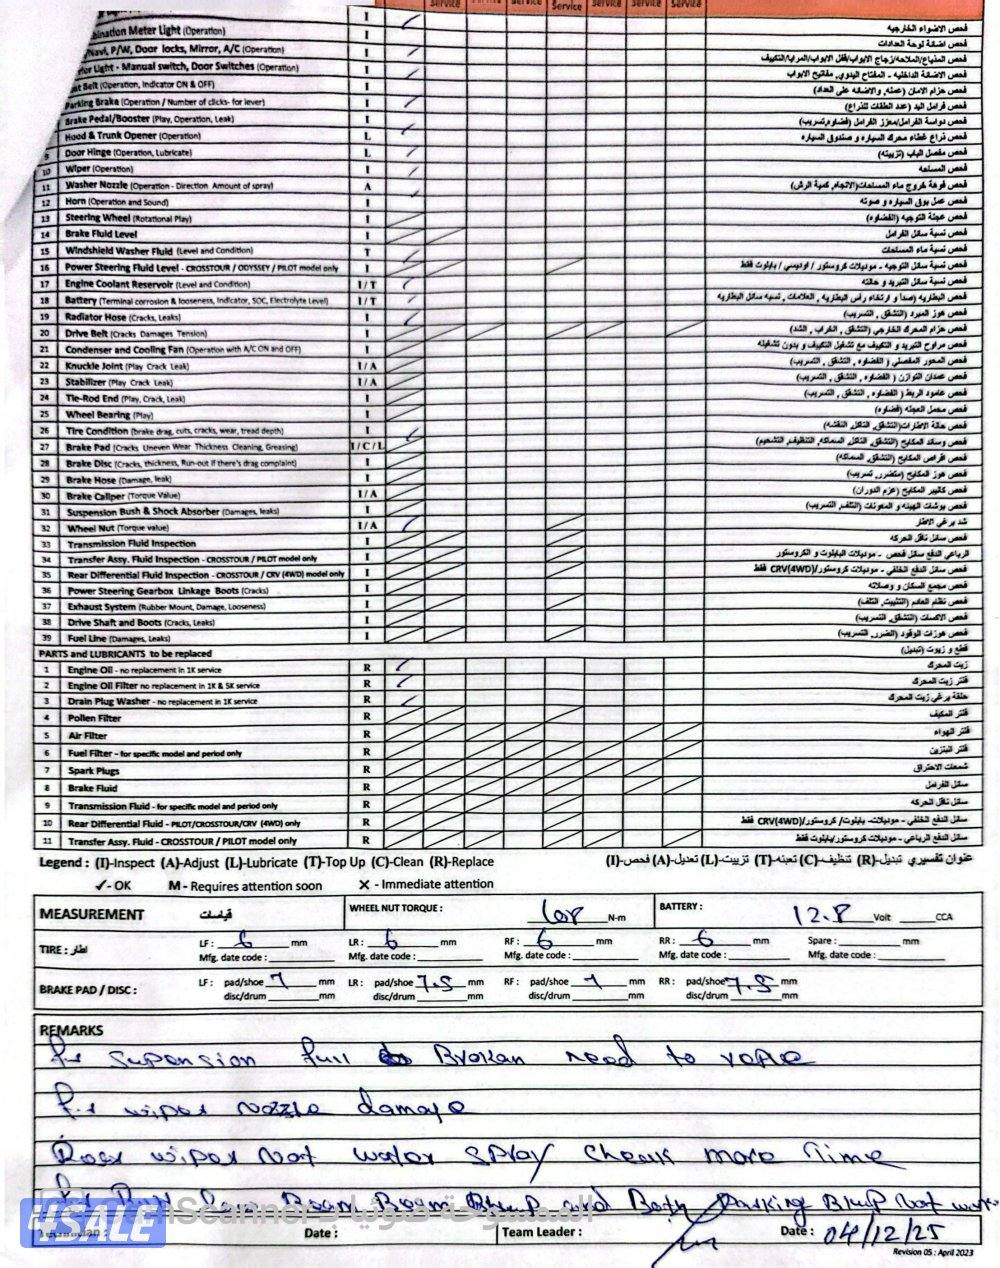 Service Service Service Service Service Service
I فحص الاضواء الخارجيه
Meter Light (Operation) I فحص اضائة لوحة العدادات
/Navi, P/W, Door locks, Mirror, A/C (Operation) I فحص المذياع/الملاحه/زجاج الابواب/قفل الابواب/المرايا/التكييف
Light - Manual switch, Door Switches (Operation) I فحص الاضائة الداخليه - المفتاح اليدوي, مفاتيح الابواب
Belt (Operation, Indicator ON & OFF) I فحص حزام الامان (عمله, والاضائه على العداد)
Parking Brake (Operation / Number of clicks- for lever) I فحص فرامل اليد (عدد الطقات للذراع)
Brake Pedal/Booster (Play, Operation, Leak) I فحص دواسة الفرامل/معزز الفرامل (فضاوه,تسريب)
Hood & Trunk Opener (Operation) L فحص ذراع غطاء محرك السياره و صندوق السياره
9 Door Hinge (Operation, Lubricate) L فحص مفصل الباب (تزييته)
10 Wiper (Operation) I فحص المساحه
11 Washer Nozzle (Operation - Direction Amount of spray) A فحص فوهة خروج ماء المساحات(الاتجاه, كمية الرش)
12 Horn (Operation and Sound) I فحص عمل بوق السياره و صوته
13 Steering Wheel (Rotational Play) I فحص عجلة التوجيه (الفضاوه)
14 Brake Fluid Level I فحص نسبة سائل الفرامل
15 Windshield Washer Fluid (Level and Condition) T فحص نسبة ماء المساحات
16 Power Steering Fluid Level - CROSSTOUR / ODYSSEY / PILOT model only I فحص نسبة سائل التوجيه - موديلات كروستور / اوديسي / بايلوت فقط
17 Engine Coolant Reservoir (Level and Condition) I / T فحص نسبة سائل التبريد و حالته
18 Battery (Terminal corrosion & looseness, Indicator, SOC, Electrolyte Level) I / T فحص البطاريه (صدأ و ارتخاء رأس البطاريه , العلامات , نسبه سائل البطاريه
19 Radiator Hose (Cracks, Leaks) I فحص هوز المبرد (التشقق, التسريب)
20 Drive Belt (Cracks Damages Tension) I فحص حزام المحرك الخارجي (التشقق , الخراب , الشد)
21 Condenser and Cooling Fan (Operation with A/C ON and OFF) I فحص مراوح التبريد و التكييف مع تشغيل التكييف و بدون تشغيله
22 Knuckle Joint (Play Crack Leak) I / A فحص المحور المفصلي ( الفضاوه , التشقق , التسريب)
23 Stabilizer (Play Crack Leak) I / A فحص عمدان التوازن ( الفضاوه , التشقق , التسريب)
24 Tie-Rod End (Play, Crack, Leak) I فحص عامود الربط ( الفضاوه , التشقق , التسريب)
25 Wheel Bearing (Play) I فحص محمل العجله (فضاوه)
26 Tire Condition (brake drag, cuts, cracks, wear, tread depth) I فحص حالة الاطارات(التشقق, التاكل, النقشه)
27 Brake Pad (Cracks Uneven Wear Thickness Cleaning, Greasing) I / C / L فحص وسائد المكابح (التشقق, التاكل, السماكه, التنظيف, التشحيم)
28 Brake Disc (Cracks, thickness, Run-out if there's drag complaint) I فحص اقراص المكابح (التشقق, السماكه)
29 Brake Hose (Damage, leak) I فحص هوز المكابح (متضرر, تسريب)
30 Brake Caliper (Torque Value) I / A فحص كاليبر المكابح (عزم الدوران)
31 Suspension Bush & Shock Absorber (Damages, leaks) I فحص بوشات الهيئه و المعونات (التلف, التسريب)
32 Wheel Nut (Torque value) I / A شد برغي الاطار
33 Transmission Fluid Inspection I فحص سائل ناقل الحركه
34 Transfer Assy. Fluid Inspection - CROSSTOUR / PILOT model only I الرباعي الدفع سائل فحص - موديلات البايلوت و الكروستور
35 Rear Differential Fluid Inspection - CROSSTOUR / CRV (4WD) model only I فحص سائل الدفع الخلفي - موديلات كروستور/CRV(4WD) فقط
36 Power Steering Gearbox Linkage Boots (Cracks) I فحص مجمع السكان و وصلاته
37 Exhaust System (Rubber Mount, Damage, Looseness) I فحص نظام العادم (التثبيت, التلف)
38 Drive Shaft and Boots (Cracks, Leaks) I فحص الاكسات (التشقق, التسريب)
39 Fuel Line (Damages, Leaks) I فحص هوزات الوقود (الضرر, التسريب)
PARTS and LUBRICANTS to be replaced قطع و زيوت (تبديل)
1 Engine Oil - no replacement in 1K service R زيت المحرك
2 Engine Oil Filter no replacement in 1K & 5K service R فلتر زيت المحرك
3 Drain Plug Washer - no replacement in 1K service R حلقة برغي زيت المحرك
4 Pollen Filter R فلتر المكيف
5 Air Filter R فلتر الهواء
6 Fuel Filter - for specific model and period only R فلتر البنزين
7 Spark Plugs R شمعات الاحتراق
8 Brake Fluid R سائل الفرامل
9 Transmission Fluid - for specific model and period only R سائل ناقل الحركه
10 Rear Differential Fluid - PILOT/CROSSTOUR/CRV (4WD) only R سائل الدفع الخلفي - موديلات- بايلوت/ كروستور/CRV(4WD) فقط
11 Transfer Assy. Fluid - CROSSTOUR / PILOT model only R سائل الدفع الرباعي - موديلات كروستور/بايلوت فقط
Legend : (I)-Inspect (A)-Adjust (L)-Lubricate (T)-Top Up (C)-Clean (R)-Replace عنوان تفسيري تبديل-(R) تنظيف-(C) تعبئه-(T) تزييت-(L) تعديل-(A) فحص-(I)
✓- OK M - Requires attention soon X - Immediate attention
MEASUREMENT قياسات WHEEL NUT TORQUE : 108 N-m BATTERY : 12.8 Volt CCA
TIRE : اطار LF : 6 mm LR : 6 mm RF : 6 mm RR : 6 mm Spare : mm
Mfg. date code : Mfg. date code : Mfg. date code : Mfg. date code : Mfg. date code :
BRAKE PAD / DISC : LF : pad/shoe 7 mm LR : pad/shoe 7.5 mm RF : pad/shoe 7 mm RR : pad/shoe 7.5 mm
disc/drum mm disc/drum mm disc/drum mm disc/drum mm
REMARKS
supension full Brokan need to
wiper nozzle damage
Rear wiper not water spray cheack more Time
Boom Boom Bkup and Both Parking Bkup not work
Scanner الممسوحة ضوئيا بـ
4SALE
Date : Team Leader : Date : 04/12/25
Revision 05 : April 2023